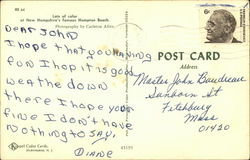 Lots of color
at New Hampshire's famous Hampton Beach
Photography by
DEAR JOHN
I hope that you HAVING
fun I hop it is good
weathe down
there I hope your
fine I don't have
nothing to SAY,
DIANE
POST CARD
Address
Master John Boudreau
Sanborn St
Fitchburg
Mass
01420
6¢
Color Cards